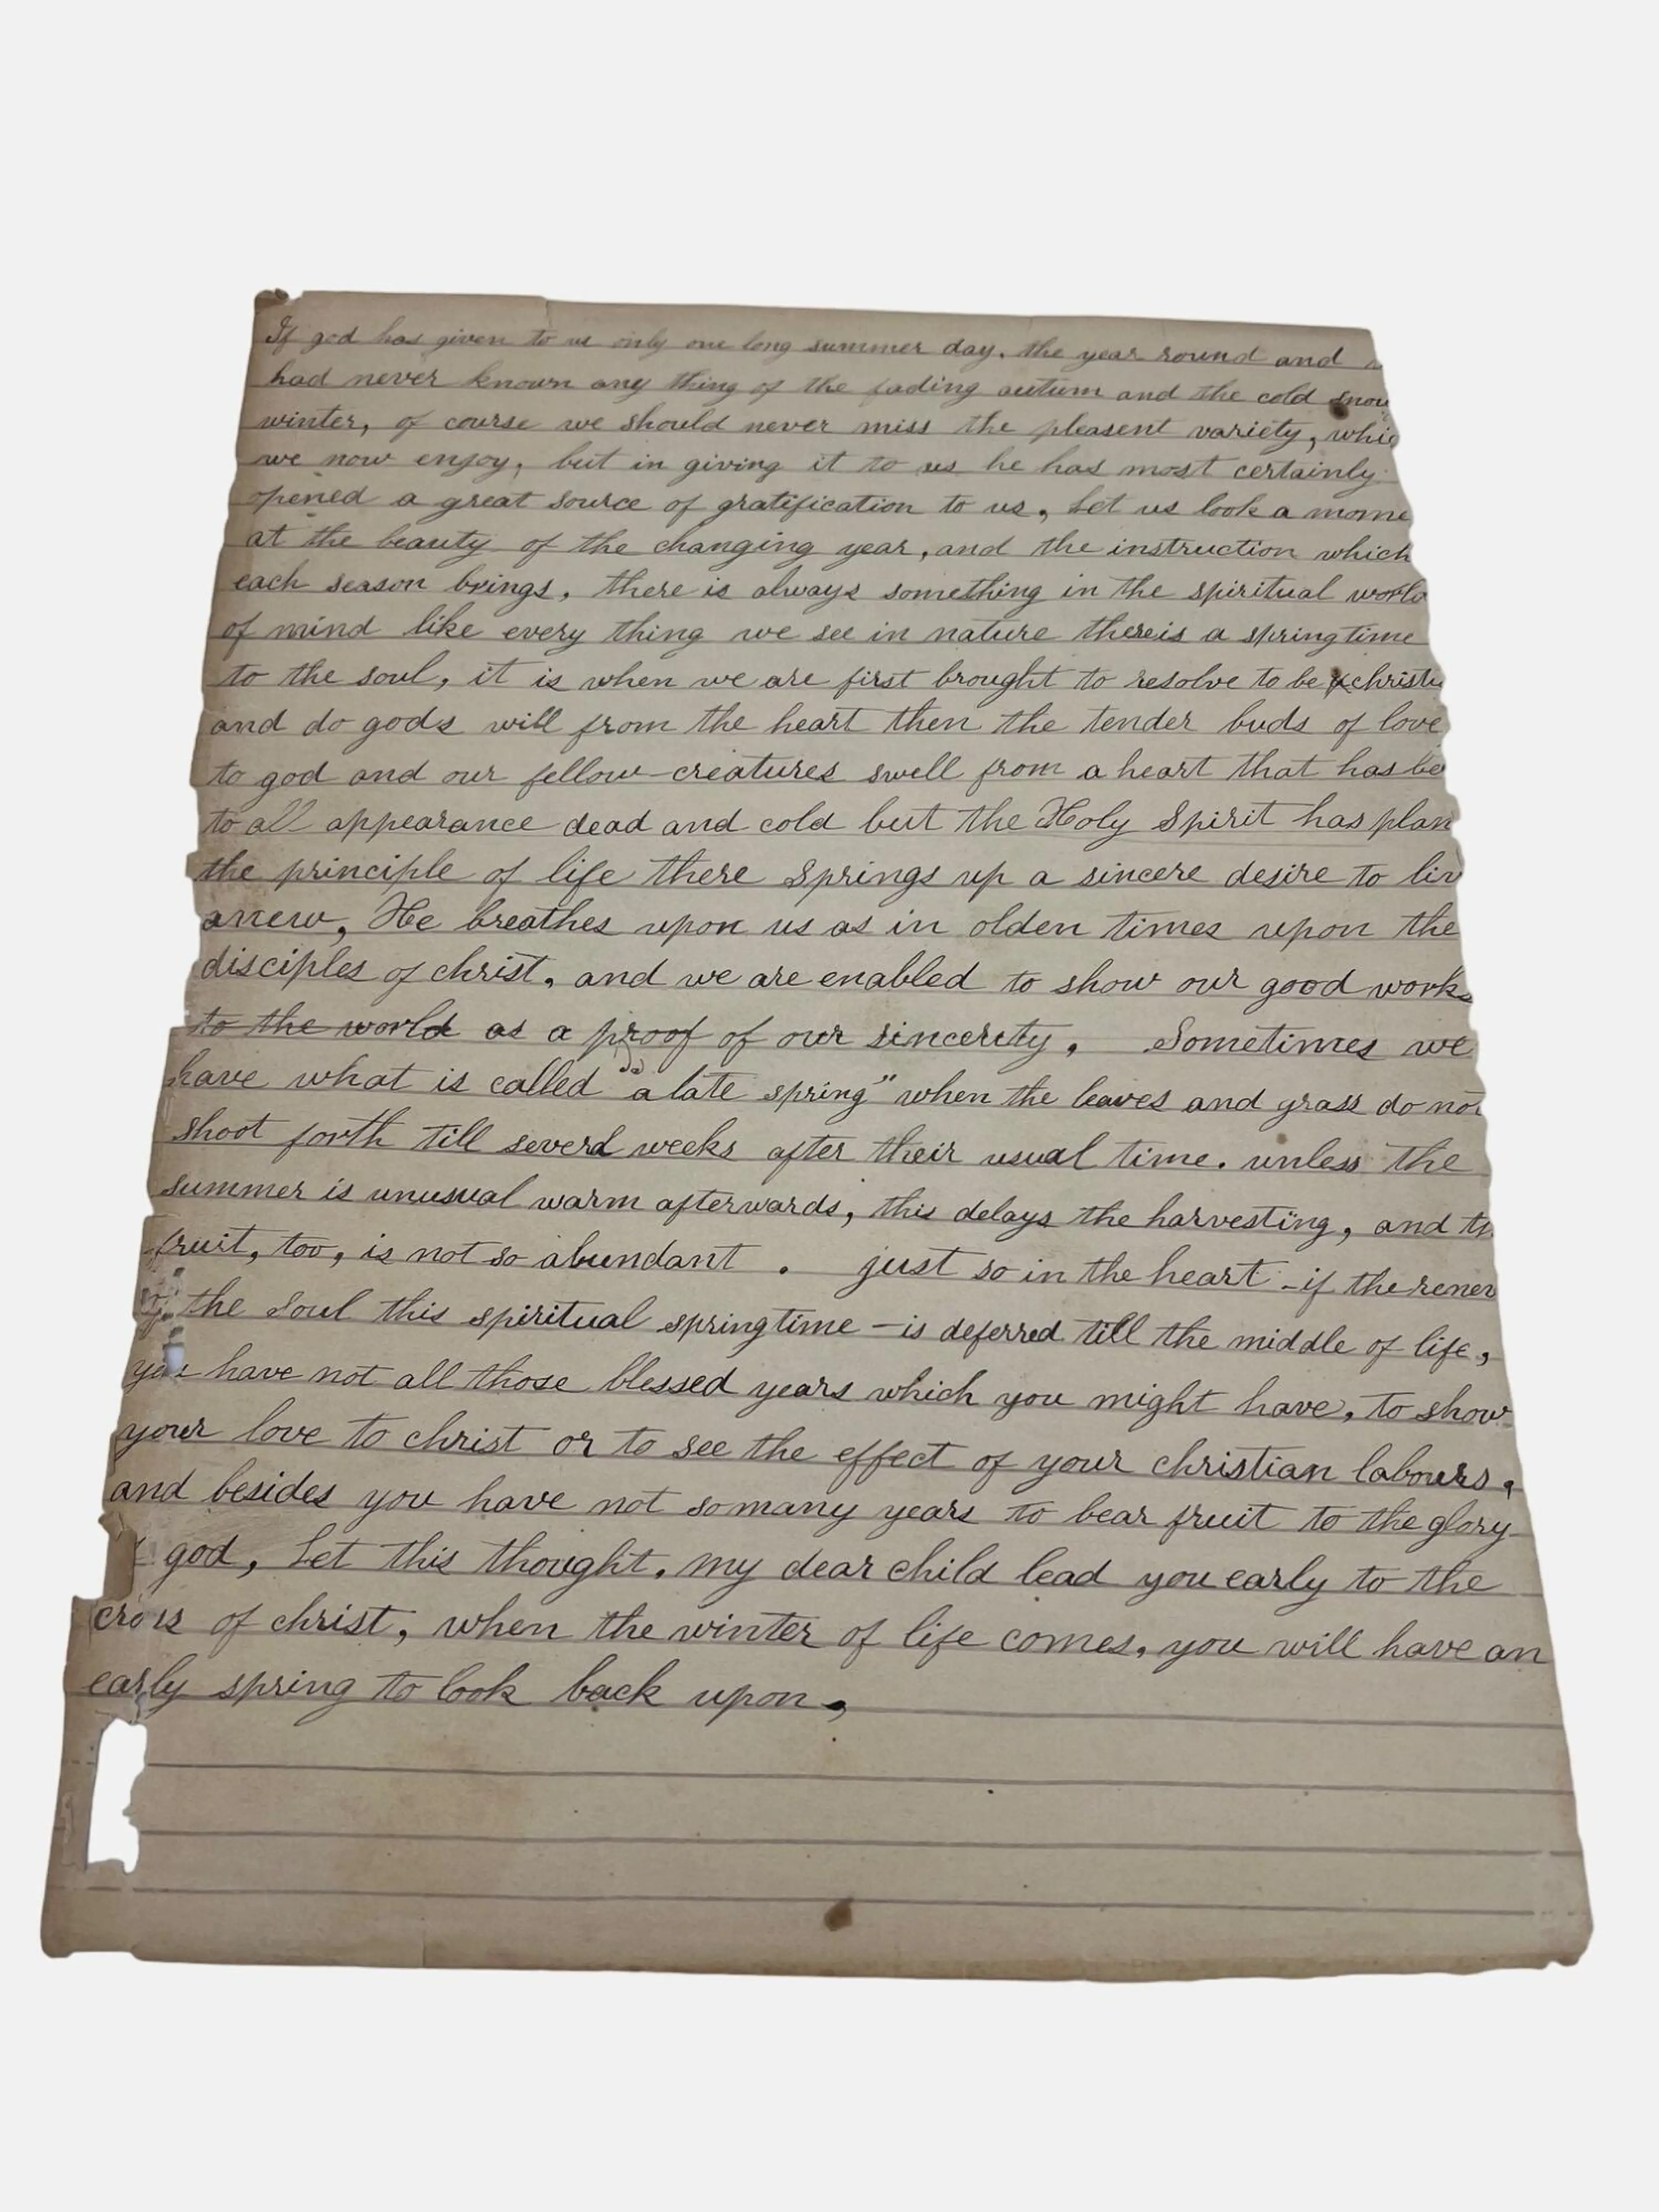 If god has given to us only one long summer day. the year round and
had never known any thing of the fading autum and the cold snow
winter, of course we should never miss the pleasent variety, whic
we now enjoy, but in giving it to us he has most certainly
opened a great source of gratification to us, Let us look a mome
at the beauty of the changing year, and the instruction which
each season brings, there is always something in the spiritual world
of mind like every thing we see in nature thereis a springtime
to the soul, it is when we are first brought to resolve to be a christi
and do gods will from the heart then the tender buds of love
to god and our fellow-creatures swell from a heart that has be
to all appearance dead and cold but the Holy Spirit has plan
the principle of life there springs up a sincere desire to liv
anew, He breathes upon us as in olden times upon the
disciples of christ, and we are enabled to show our good works
to the world as a proof of our sincerity, Sometimes we
have what is called "a late spring" when the leaves and grass do not
shoot forth till severl weeks after their usual time. unless the
summer is unusual warm afterwards, this delays the harvesting, and th
fruit, too, is not so abundant . just so in the heart - if the renew
the soul this spiritual springtime - is deferred till the middle of life,
you have not all those blessed years which you might have, to show
your love to christ or to see the effect of your christian labours,
and besides you have not so many years to bear fruit to the glory
god, Let this thought, my dear child lead you early to the
cross of christ, when the winter of life comes, you will have an
early spring to look back upon,